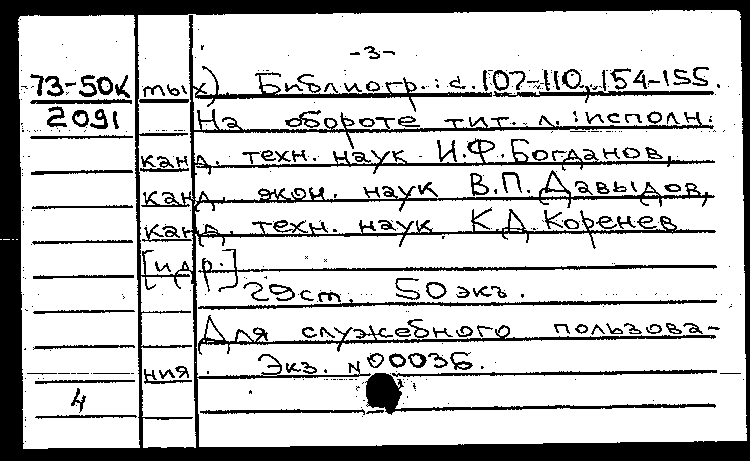 -3-
73-50к тых). Библиогр.: с. 107-110, 154-155.
2091 На обороте тит. л.: исполн.
канд. техн. наук И.Ф. Богданов,
канд. экон. наук В.П. Давыдов,
канд. техн. наук К.Д. Коренев
[и др.]
29 ст. 50 экз.
Для служебного пользова-
ния. Экз. №00036.
4